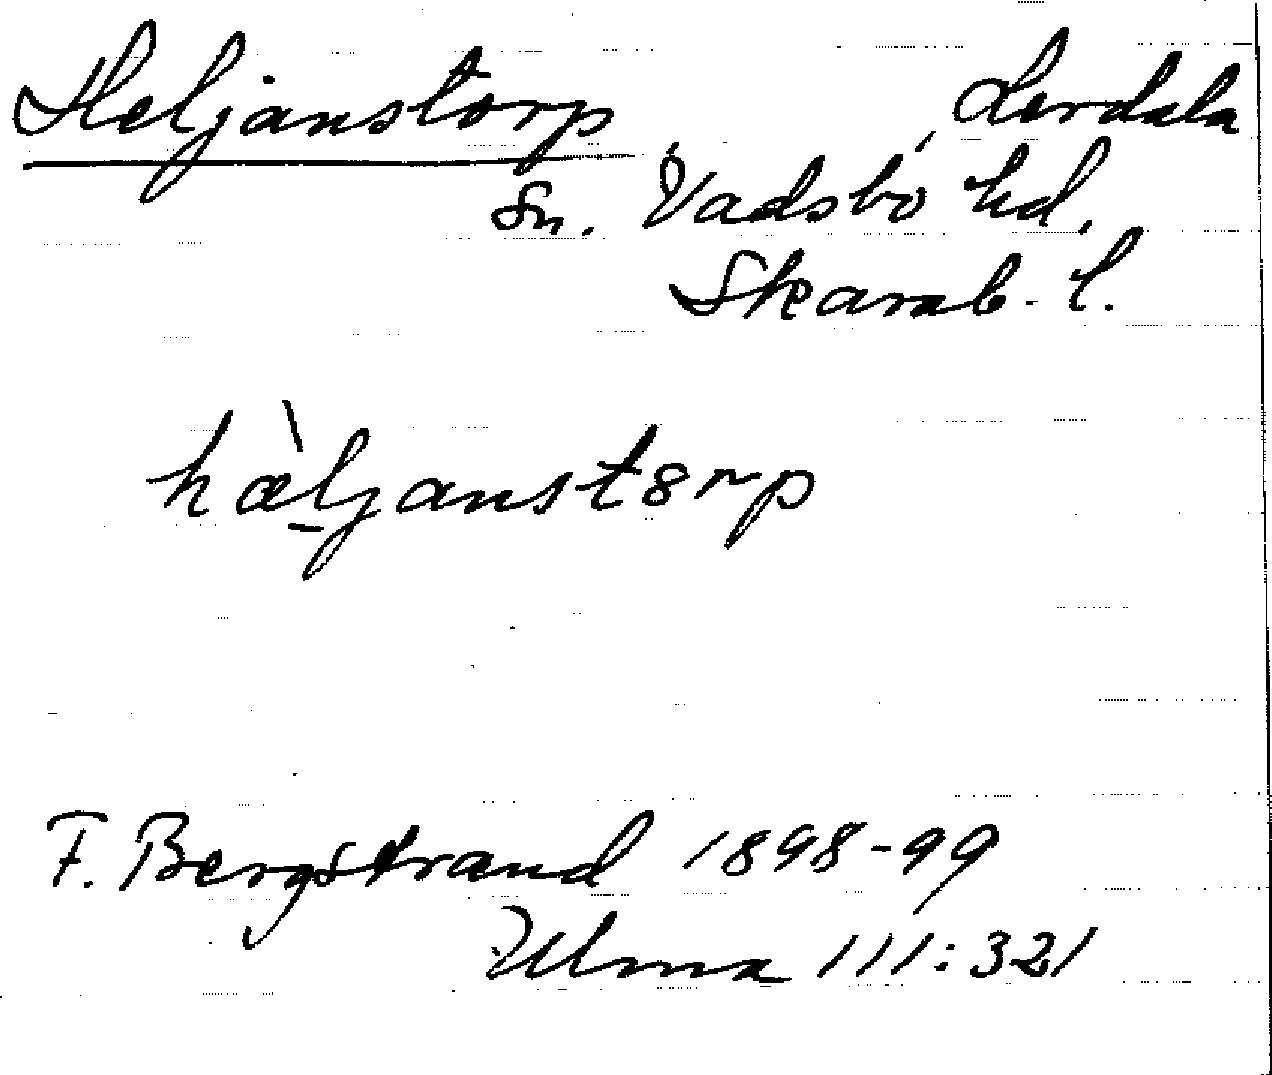 Heljanstorp, Lerdala
Sn. Vadsbo hd.
Skarab. l.
hæ̀ljanstɷrp
F. Bergstrand 1898-99
Ulma 111:321